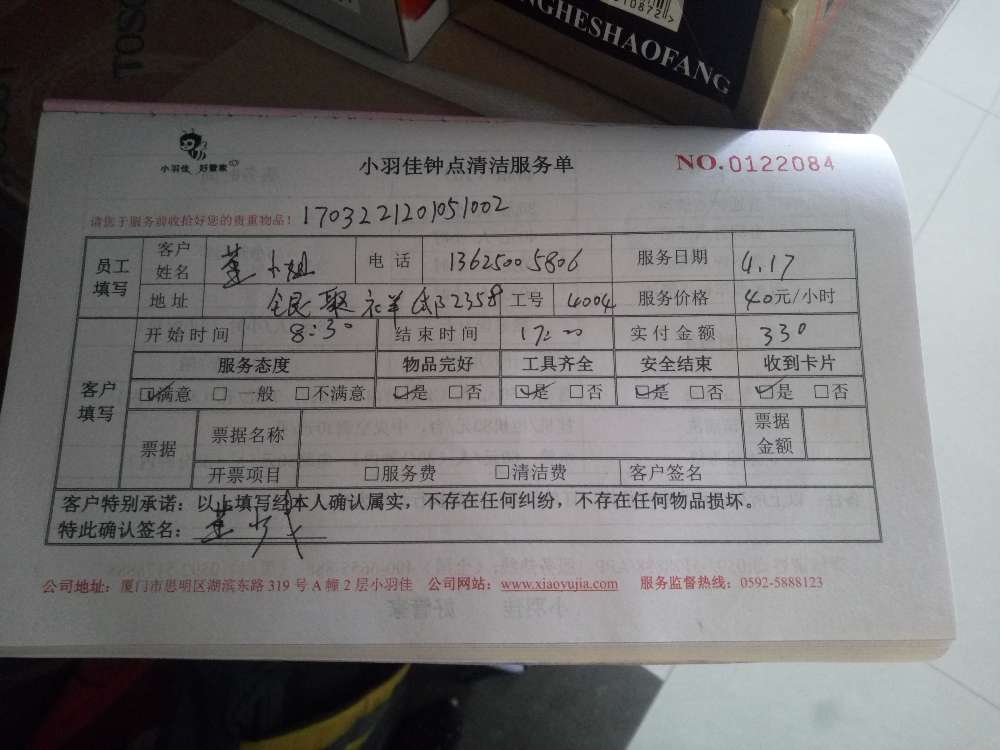 TOSO
NGHESHAOFANG
小羽佳 好管家
小羽佳钟点清洁服务单
NO.0122084
请您于服务前收拾好您的贵重物品！1703221201051002
员工填写 客户姓名 董小姐 电话 13625005806 服务日期 4.17
地址 2358 工号 4004 服务价格 40元/小时
客户填写 开始时间 8:30 结束时间 17:00 实付金额 330
服务态度 物品完好 工具齐全 安全结束 收到卡片
☑满意 □一般 □不满意 ☑是 □否 ☑是 □否 ☑是 □否 ☑是 □否
票据 票据名称 票据金额
开票项目 □服务费 □清洁费 客户签名
客户特别承诺：以上填写经本人确认属实，不存在任何纠纷，不存在任何物品损坏。
特此确认签名：董
公司地址：厦门市思明区湖滨东路 319 号 A 幢 2 层小羽佳 公司网站：www.xiaoyujia.com 服务监督热线：0592-5888123